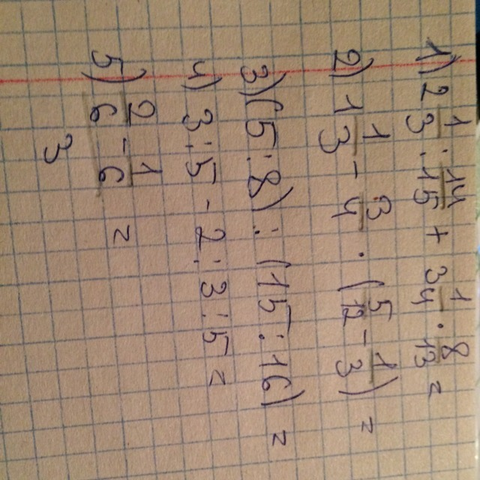 1) 2 1/3 : 14/15 + 3 1/4 · 8/13 =
2) 1 1/3 - 3/4 · (5/12 - 1/3) =
3) (5:8) : (15:16) =
4) 3:5 - 2:3:5 =
5) 2/6 - 1/6 =
3